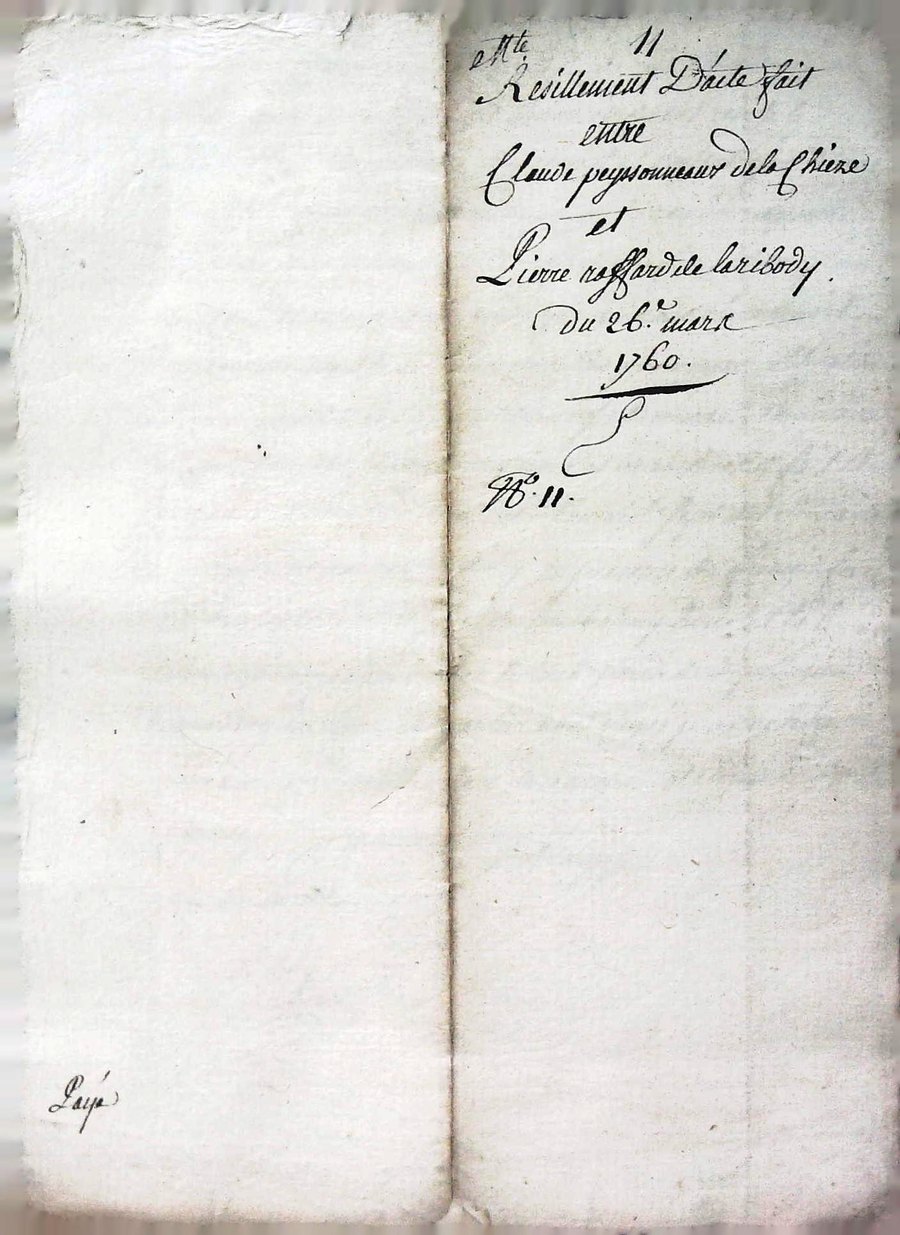 11
Resillement D'acte fait
entre
Claude peyssonneaux de la Chieze
et
Pierre raffard de laribody.
du 26.e mars
1760.
No. 11.
Payé